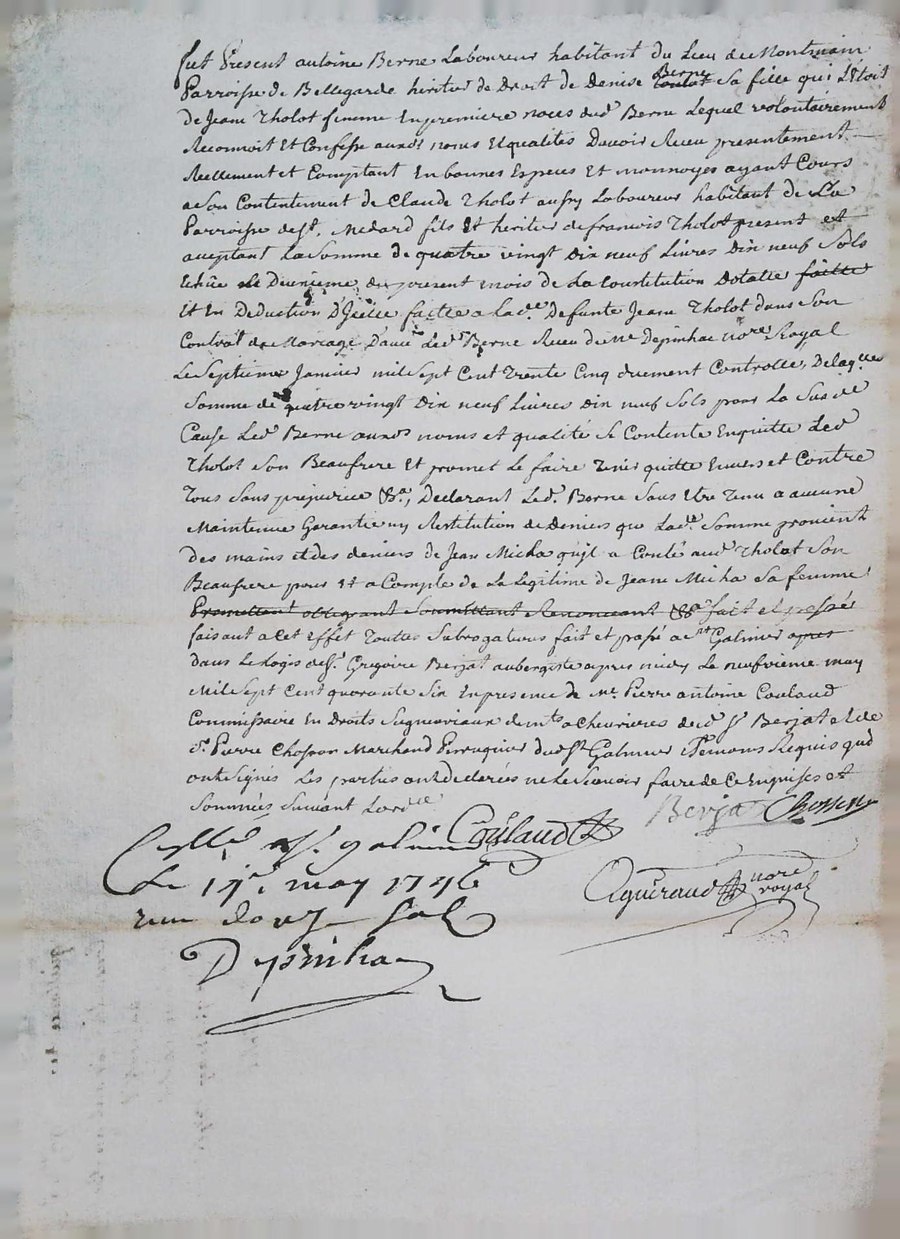 fut Present antoine Berne Laboureur habitant du Lieu de Montmain
Parroisse de Bellegarde heritier de Droit de Denise Berne sa fille qui L'étoit
de Jeane Tholot femme en premiere noces dud Berne Lequel volontairement
Reconnoit et Confesse auxd noms et qualités Davoir Receu presentement
Reellement et Comptant En bonnes Especes Et monnoyes ayant Cours
a Son Contentement de Claude Tholot aussy Laboureur habitant de La
Parroisse de St. Medard fils Et heritier de francois Tholot present et
aceptant La Somme de quatre vingt Dix neuf Livres Dix neuf Sols
Echue Le Deuxieme du present mois de La Constitution Dotalle faitte
Et En Deduction D'Jcelle faitte a Lade Defunte Jeane Tholot dans Son
Contrat de Mariage D'avec Led Berne Receu de Me Depinhac nore Royal
Le Septieme Janvier mil Sept Cent Trente Cinq duement Controllé, De laqe
Somme de quatre vingt Dix neuf Livres Dix neuf Sols pour La Susde
Cause Led Berne auxds noms et qualité Se Contente En quitte Led
Tholot Son Beaufrere Et promet Le faire Tenir quitte Envers et Contre
Tous Sans prejudice &a, Declarant Led. Berne Sans Etre Tenu a aucune
Maintenue Garantie ny Restitution de deniers que Lade Somme provient
des mains et des deniers de Jean Micha qu'il a Conté aud Tholot Son
Beaufrere pour Et a Compte de La Legitime de Jeane Micha Sa femme
Promettant obligeant Soumettant Renoncant &a fait et passé
faisant a Cet Effet Toutes Subrogatures fait et passé a St Galmier apres
dans Le Logis de Sr. Gregoire Berjat aubergiste apres midy Le neufvieme may
Mil Sept Cent quarante Six En presence de Me Pierre antoine Coulaud
Commissaire En Droits Seigneuriaux demt a Chevrieres de d Sr Berjat et de
Sr. Pierre Chosson Marchand Perruquier dud St Galmier Temoins Requis qui
ont Signés Les parties ont declarés ne Le Scavoir faire de Ce Enquises et
Sommées Suivant Lordce
Berjat Chosson
Coulaud
Cllé a St. galmier
Le 14e may 1746
Reçu douze Sols
Depinhac
Aguiraud nore royal